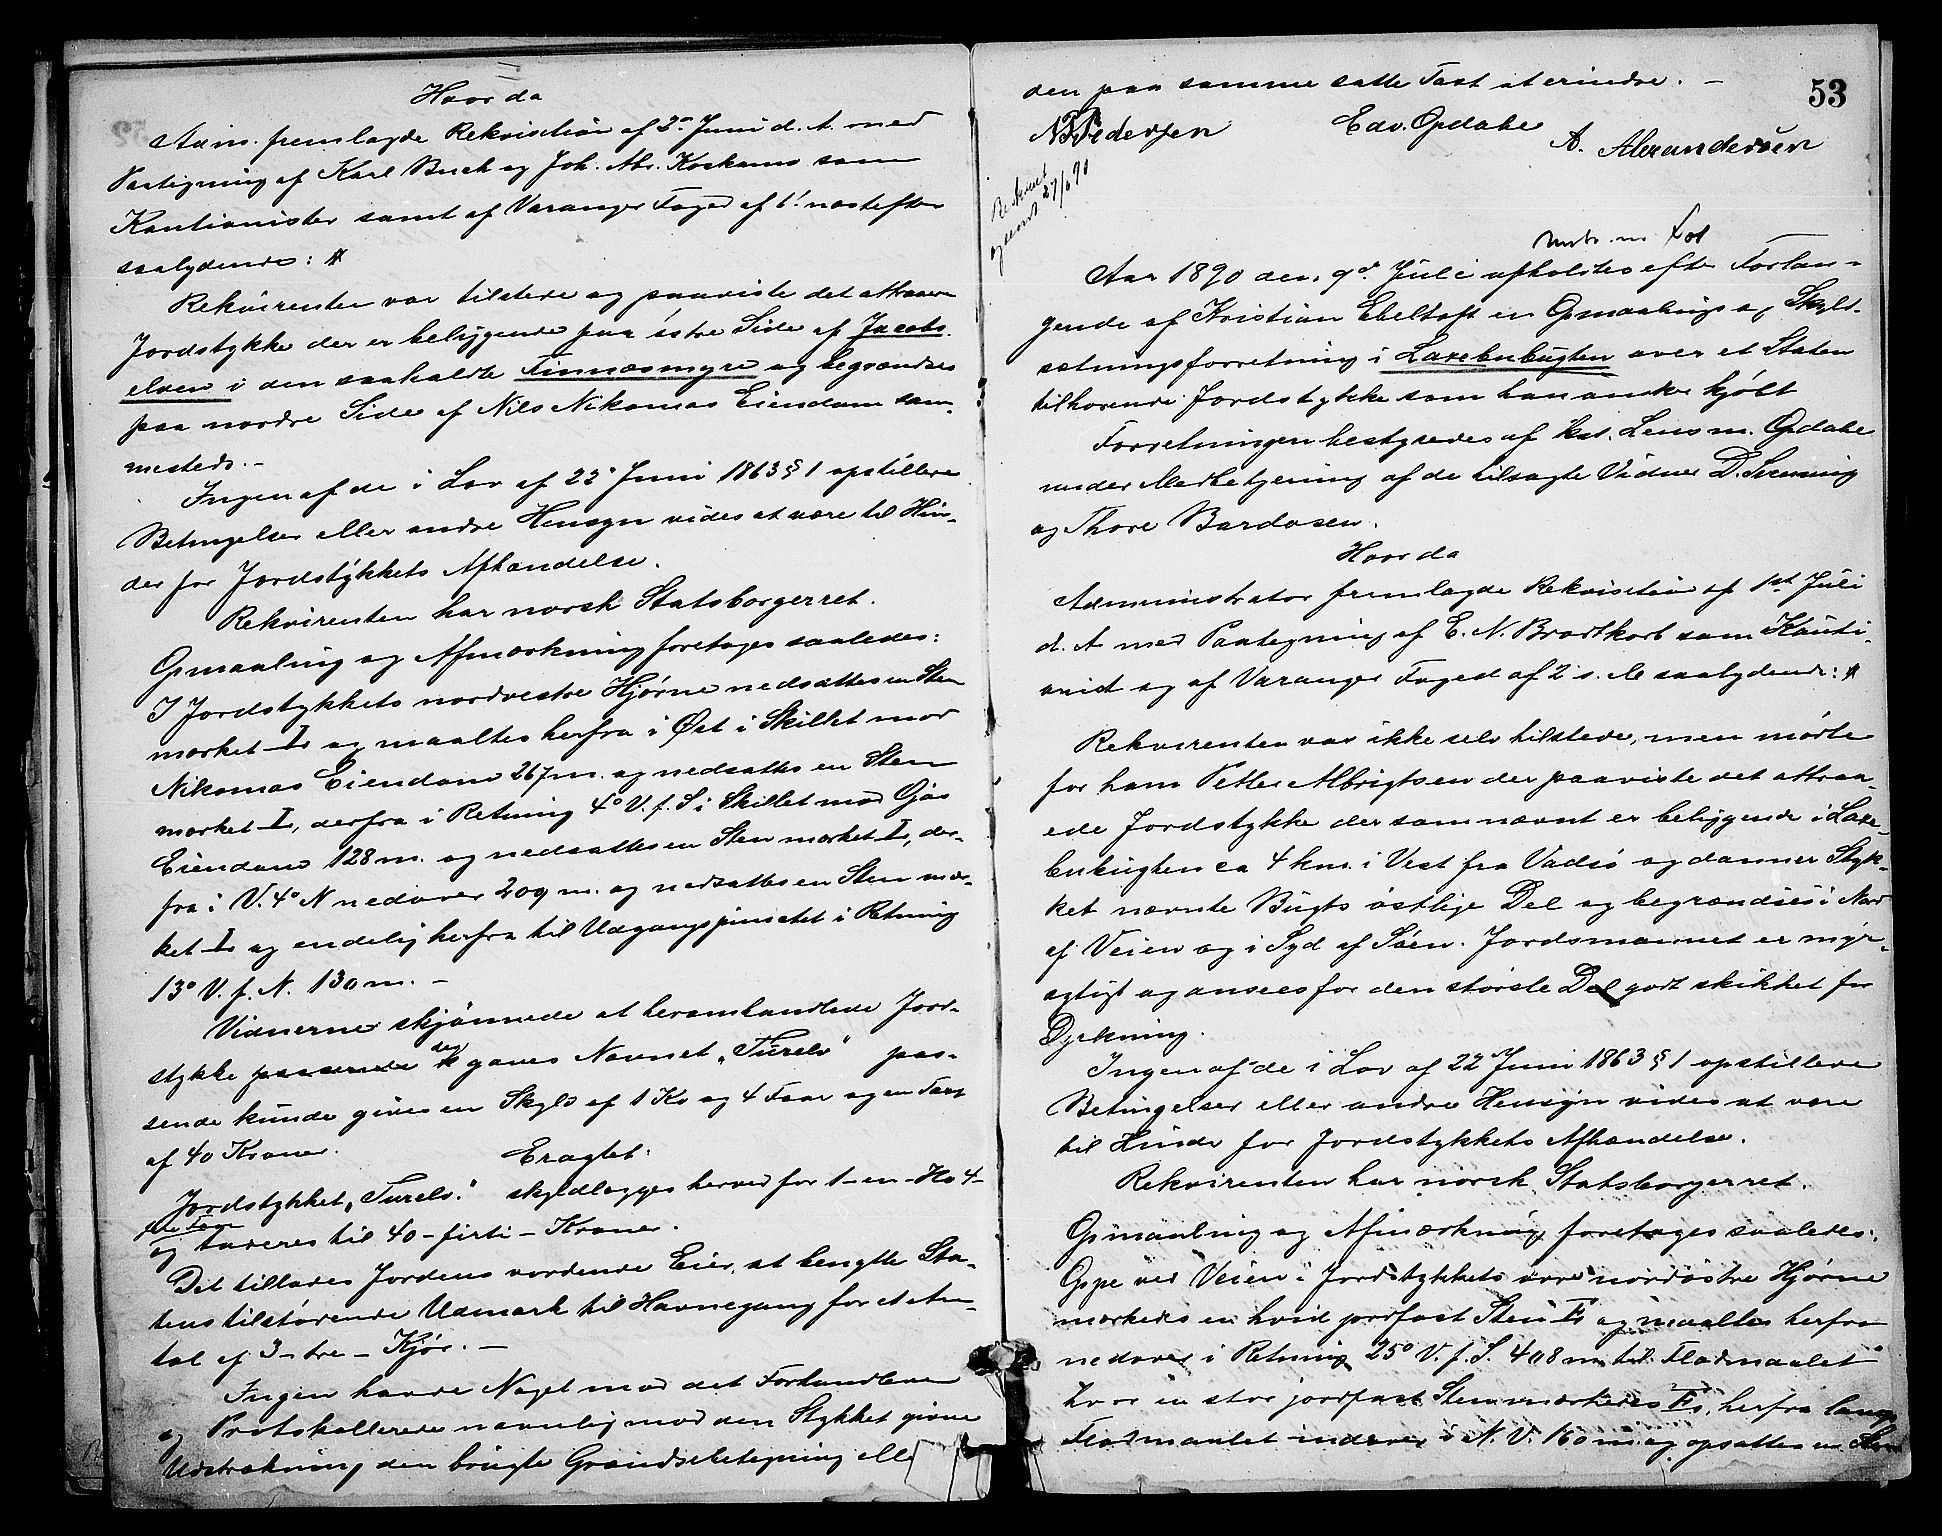 Hvorda
Adm. fremlagde Rekvisition af 2en Juni d. A. med
Paategning af Karl Buch og Joh. Abr. Koskamo som
Kautionister samt af Varanger Foged af 6t næstefter
saalydende: #
Rekvirenten var tilstede og paaviste det attraaede
Jordstykke der er beliggende paa østre Side af Jacobs-
elven i den saakaldte Finnæsmyre og begrændses
paa nordre Side af Nils Nikomas Eiendom sam-
mesteds. -
Ingen af de i Lov af 22' Juni 1863 § 1 opstillede
Betingelser eller andre Hensyn vides at være til Hin-
der for Jordstykkets Afhændelse.
Rekvirenten har norsk Statsborgerret.
Opmaaling og Afmærkning foretoges saaledes:
I Jordstykkets nordvestre Hjørne nedsattes en Sten
mærket I og maaltes herfra i Øst i Skillet mod
Nikomas Eiendom 267 m. og nedsattes en Sten
mærket I, derfra i Retning 4° V. f. S i Skillet mod
Eiendom 128 m. og nedsattes en Sten mærket I, der-
fra i V. 4° N nedover 209 m. og nedsattes en Sten mær-
ket I og endelig herfra til Udgangspunctet i Retning
13° V. f. N. 130 m. -
Vidnerne skjønnede at heromhandlede Jord-
stykke passende der gaves Navnet „Turelv" pas-
sende kunde gives en Skyld af 1 Ko og 4 Faar og en Taxt
af 40 Kroner.
Eragtet:
Jordstykket „Turelv." skyldlægges herved for 1 - en - Ko 4-
fire Faar
og taxeres til 40 - firti - Kroner.
Det tillades Jordens vordende Eier, at benytte Sta-
tens tilstødende Udmark til Havnegang for et An-
tal af 3 - tre - Kjør. -
Ingen havde Noget mod det Forhandlede
og Protokollerede navnlig mod den Stykket givne
Udstrækning, den brugte Grændsebetegning eller
53
den paa samme satte Taxt at erindre. -
N. Pedersen Edv. Opdahl A. Alexandersen
Beskrevet
27/6 90
Aar 1890 den 9d. Juli afholdtes efter Forlan-
gende af Kristian Ebeltoft en Opmaalings og Skyld-
sætningsforretning i Laxebubugten over et Staten
tilhørende Jordstykke som han ønsker kjøbt
Forretningen bestyredes af kst. Lensm. Opdahl
under Medbetjening af de tilsagte Vidner D. Serening
og Thore Bardosen.
Hvor da
Administrator fremlagde Rekvisition af 1st Juli
d. A med Paategning af E. N. Brodtkorb som Kauti-
onist og af Varanger Foged af 2' s. M saalydende: #
Rekvirenten var ikke selv tilstede, men mødte
for ham Petter Albrigtsen der paaviste det attraa-
ede Jordstykke der som nævnt er beliggende i Laxe-
bubugten ca 4 km. i Vest fra Vadsø og danner Styk-
ket nævnte Bugts østlige Del og begrændses i Nord
af Veien og i Syd af Søen. Jordsmonnet er myr-
agtigt og ansees for den største Del godt skikket for
Dyrkning.
Ingen af de i Lov af 22 Juni 1863 § 1 opstillede
Betingelser eller andre Hensyn vides at være
til Hinder for Jordstykkets Afhændelse.
Rekvirenten har norsk Statsborgerret.
Opmaaling og Afmærkning foretoges saaledes:
Oppe ved Veien i Jordstykkets øvre nordøstre Hjørne
mærkedes en hvid jordfast Sten og maaltes herfra
nedover i Retning 25° V. f. S. 408 m. til Flodmaalet
hvor en stor jordfast Sten mærkedes, herfra langs
Flodmaalet indover i N. V. 160 m og opsattes en Sten